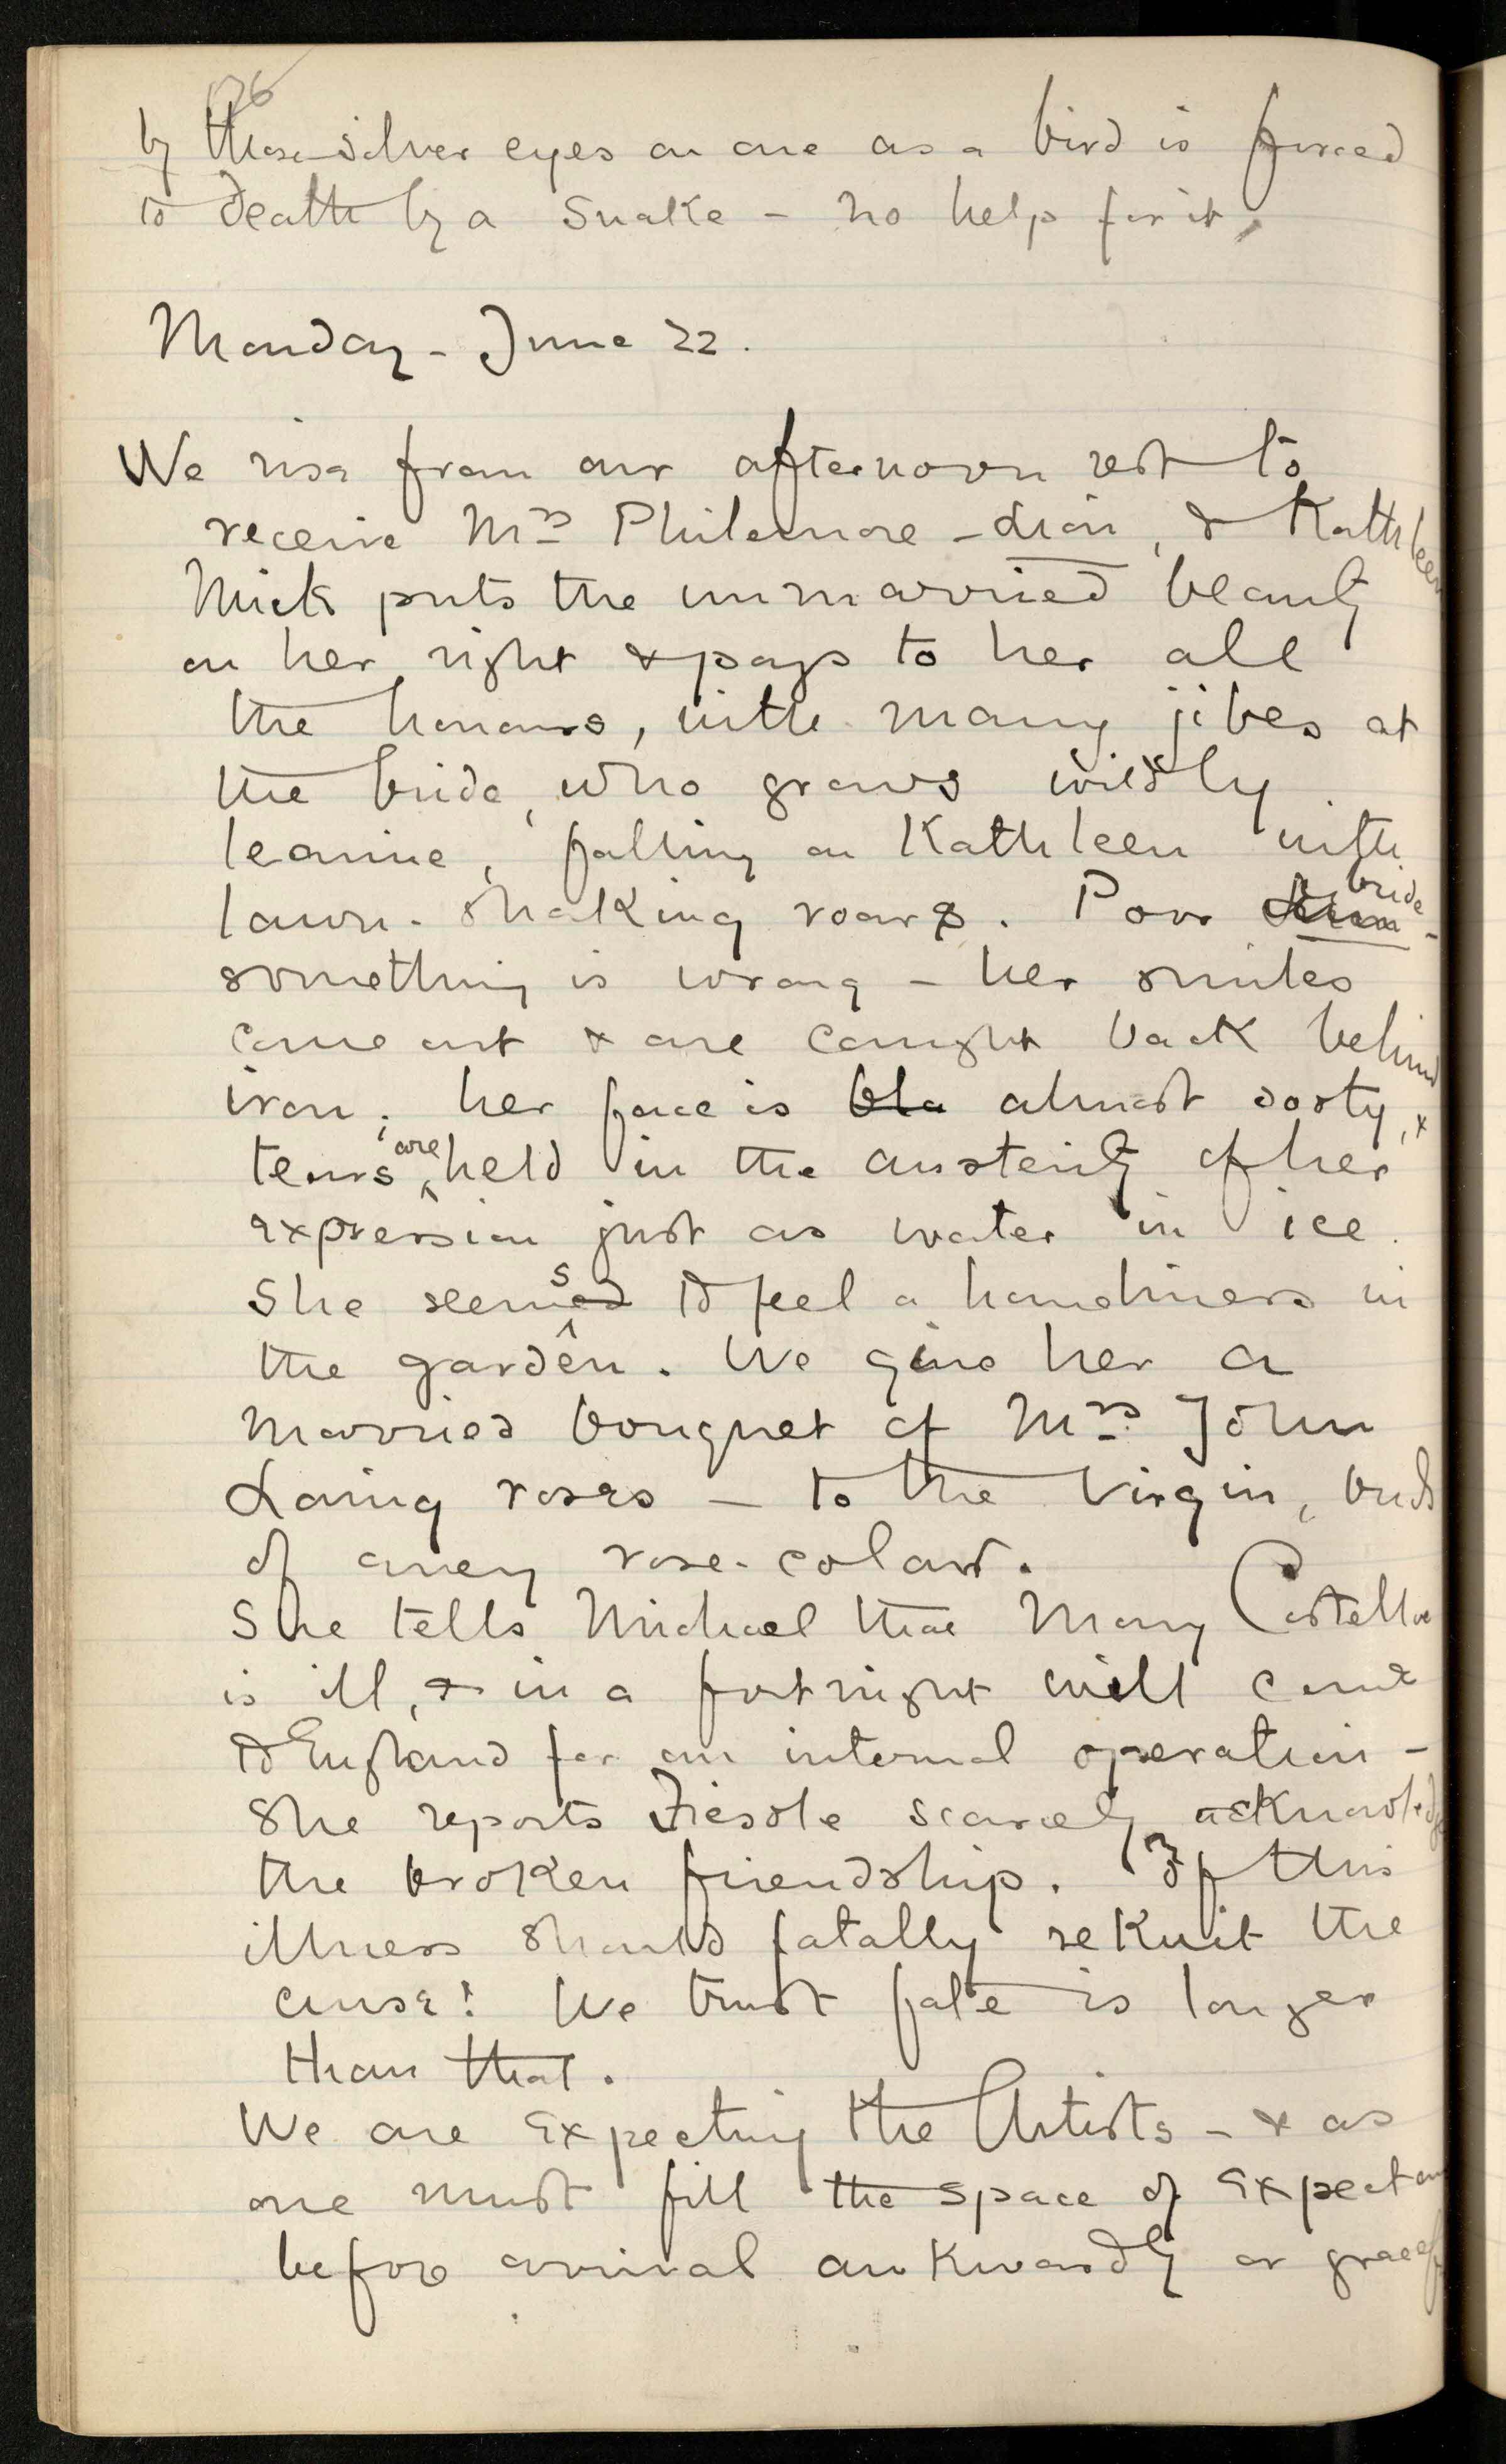 76
by those silver eyes on one as a bird is forced
to death by a snake - no help for it,
Monday - June 22.
We rise from our afternoon rest to
receive Mrs Philemore - Lion, & Kathleen
Mick puts the unmarried beauty
on her right & pays to her all
the honours, with many jibes at
the bride, who grows wildly
leonine, falling on Kathleen with
lawn-shaking roars. Poor bride -
something is wrong - her smiles
come out & are caught back behind
iron; her face is bla almost sooty, &
tears are held in the austerity of her
expression just as water in ice.
She seems to feel a homeliness in
the garden. We give her a
married bouquet of Mrs John
Laing roses - to the Virgin, buds
of every rose-colour.
She tells Michael that Mary Costelloe
is ill, & in a fortnight will come
to England for an internal operation -
She reports Fiesole scarcely acknowledges
the broken friendship. If this
illness should fatally reknit the
curse! We trust fate is longer
than that.
We are expecting the Artists - & as
one must fill the space of expectancy
before arrival awkwardly or gracefully